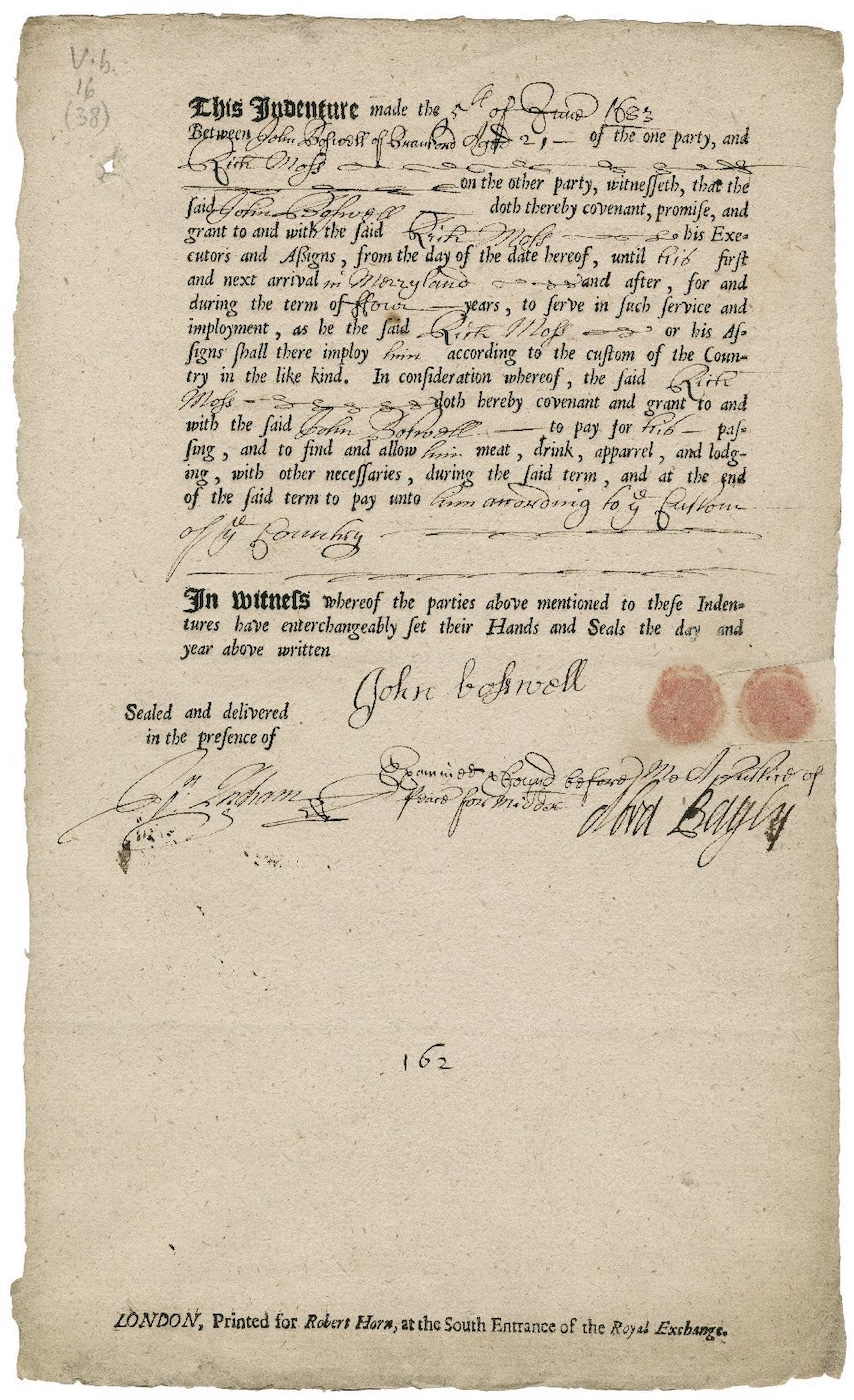 V.b.
16
(38)
This Indenture made the 5th of June 1683
Between John Boswell of Brainford Aged 21 — of the one party, and
Rich Moss
on the other party, witnesseth, that the
said John Boswell doth thereby covenant, promise, and
grant to and with the said Rich Moss his Exe-
cutors and Assigns, from the day of the date hereof, until his first
and next arrival in Merryland and after, for and
during the term of ffour years, to serve in such service and
imployment, as he the said Rich Moss or his As-
signs shall there imploy him according to the custom of the Coun-
try in the like kind. In consideration whereof, the said Rich
Moss doth hereby covenant and grant to and
with the said John Boswell — to pay for his — pas-
sing, and to find and allow him meat, drink, apparrel, and lodg-
ing, with other necessaries, during the said term, and at the end
of the said term to pay unto him according to ye Custom
of ye Countrey
In witness whereof the parties above mentioned to these Inden-
tures have enterchangeably set their Hands and Seals the day and
year above written
John boswell
Sealed and delivered
in the presence of
Examined & bound before Me A Justice of
Peace for Middx
162
LONDON, Printed for Robert Horn, at the South Entrance of the Royal Exchange.